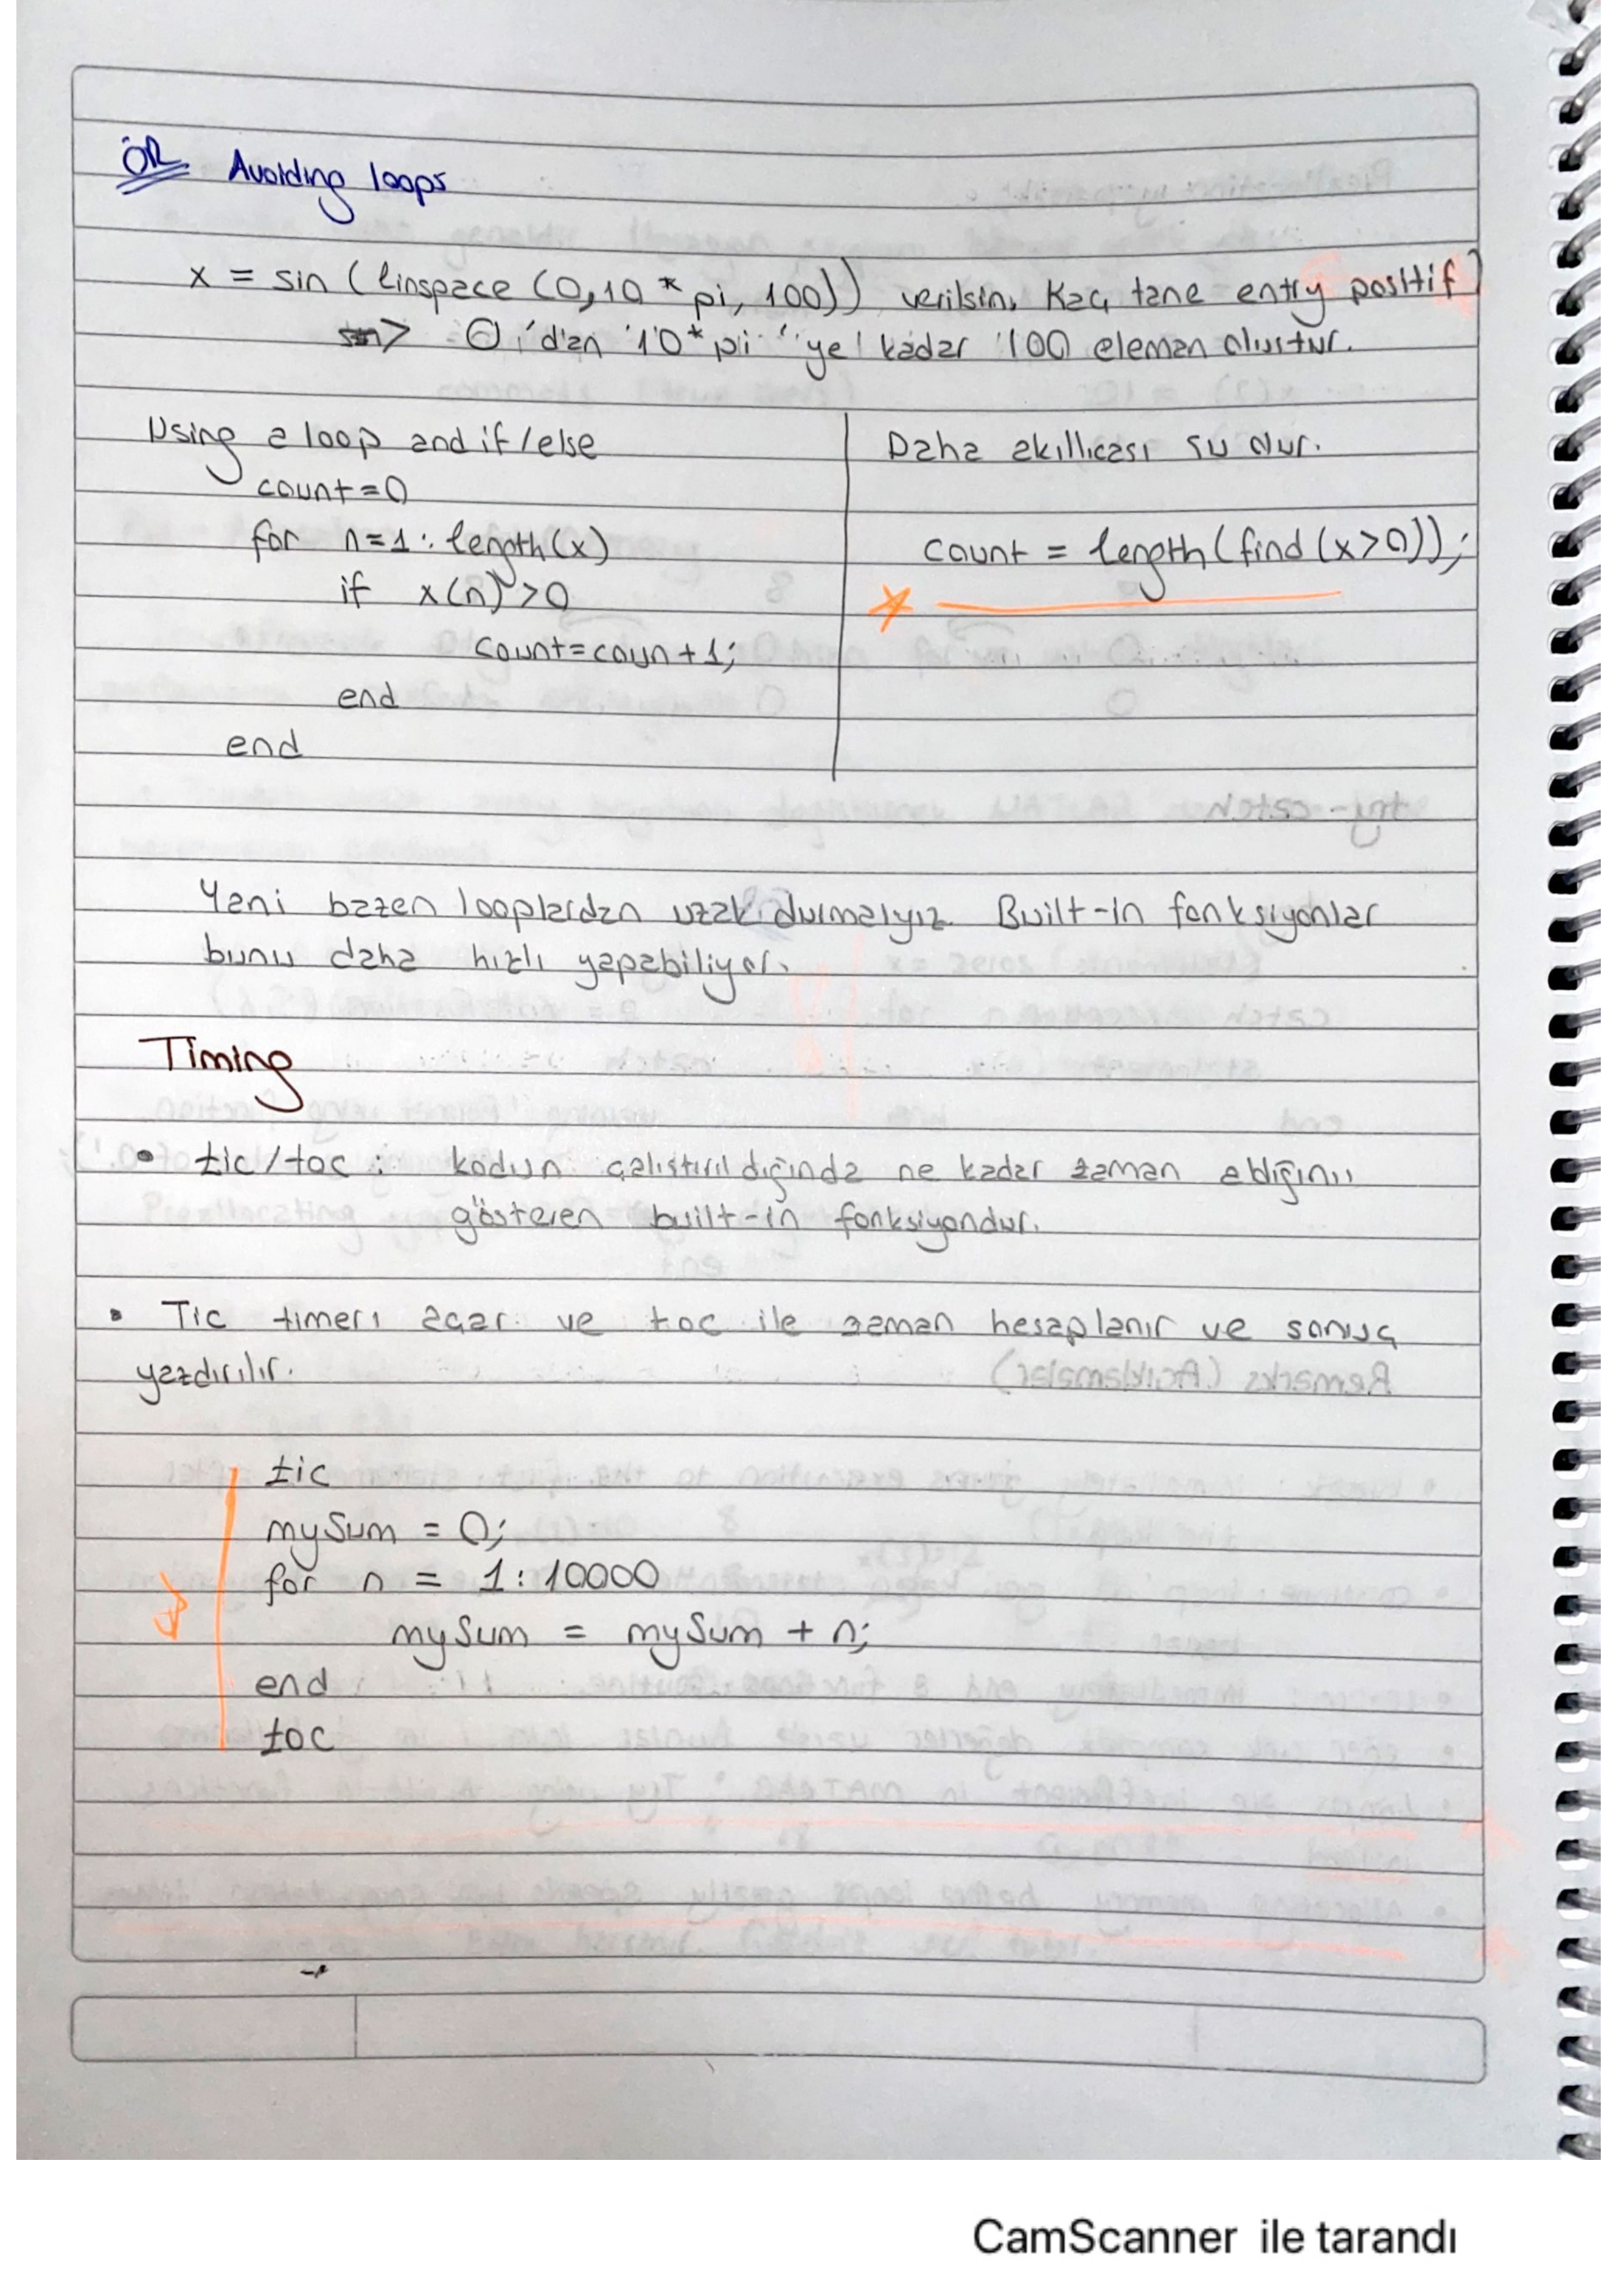 ÖR Avoiding loops
x = sin (linspace (0,10 * pi, 100)) verilsin. Kaç tane entry positif?
=> 0 'dan 10* pi 'ye kadar 100 eleman oluştur.
Using a loop and if/else
count=0
for n=1 : length(x)
if x(n) >0
count=coun+1;
end
end
Daha akıllıcası şu olur.
count = length(find(x>0));
Yani bazen looplardan uzak durmalıyız. Built-in fonksiyonlar
bunu daha hızlı yapabiliyor.
Timing
• tic/toc : kodun çalıştırıldığında ne kadar zaman aldığını
gösteren built-in fonksiyondur.
• Tic timerı açar ve toc ile zaman hesaplanır ve sonuç
yazdırılır.
tic
mySum = 0;
for n = 1:10000
mySum = mySum + n;
end
toc
CamScanner ile tarandı